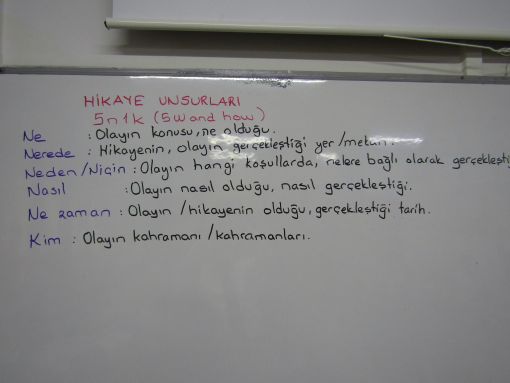 HİKAYE UNSURLARI
5n1k (5W and how)
Ne : Olayın konusu, ne olduğu.
Nerede : Hikayenin, olayın gerçekleştiği yer/mekan.
Neden/Niçin : Olayın hangi koşullarda, nelere bağlı olarak gerçekleşti
Nasıl : Olayın nasıl olduğu, nasıl gerçekleştiği.
Ne zaman : Olayın /hikayenin olduğu, gerçekleştiği tarih.
Kim : Olayın kahramanı /kahramanları.